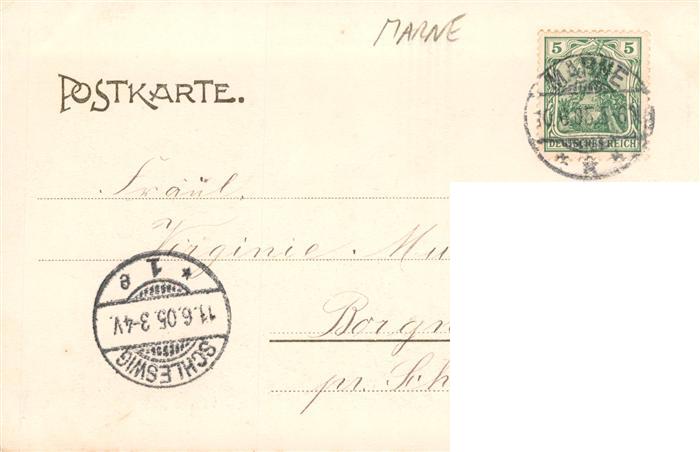 MARNE
POSTKARTE.
5 5
MARNE
DEUTSCHES REICH
Fräul.
Virginie. Mu
Borgn
pr. Sch
* 1 e
11.6.05.3-4V.
SCHLESWIG